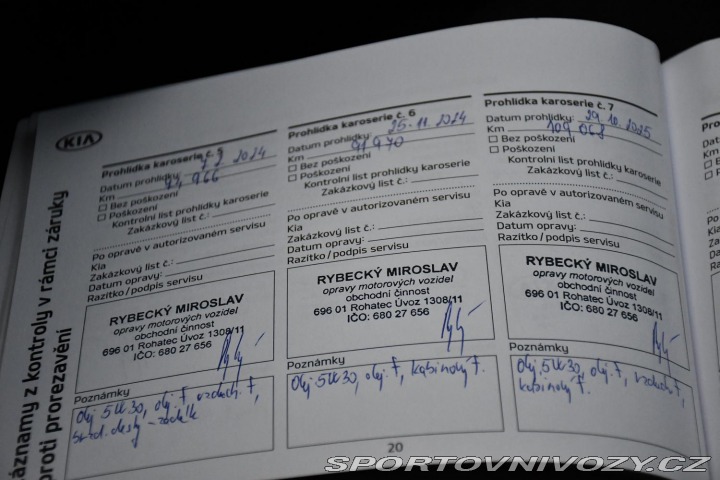 KIA
áznamy z kontroly v rámci záruky
proti prorezavění
Prohlídka karoserie č. 5
Datum prohlídky: 2024
Km
Bez poškození
Poškození
Kontrolní list prohlídky karoserie
Zakázkový list č.:
Po opravě v autorizovaném servisu
Kia
Zakázkový list č.:
Datum opravy:
Razítko / podpis servisu
RYBECKÝ MIROSLAV
opravy motorových vozidel
obchodní činnost
696 01 Rohatec Úvoz 1308/11
IČO: 680 27 656
Poznámky
Olej 5W30, olej. f, vzduch. f,
Prohlídka karoserie č. 6
Datum prohlídky: 25. 11. 2024
Km 91 970
Bez poškození
Poškození
Kontrolní list prohlídky karoserie
Zakázkový list č.:
Po opravě v autorizovaném servisu
Kia
Zakázkový list č.:
Datum opravy:
Razítko / podpis servisu
RYBECKÝ MIROSLAV
opravy motorových vozidel
obchodní činnost
696 01 Rohatec Úvoz 1308/11
IČO: 680 27 656
Poznámky
Olej 5W30, olej. f, kabinový f.
Prohlídka karoserie č. 7
Datum prohlídky: 29. 10. 2025
Km 109 068
Bez poškození
Poškození
Kontrolní list prohlídky karoserie
Zakázkový list č.:
Po opravě v autorizovaném servisu
Kia
Zakázkový list č.:
Datum opravy:
Razítko / podpis servisu
RYBECKÝ MIROSLAV
opravy motorových vozidel
obchodní činnost
696 01 Rohatec Úvoz 1308/11
IČO: 680 27 656
Poznámky
Olej 5W30, olej. f, vzduch. f,
kabinový f.
20
SPORTOVNIVOZY.CZ